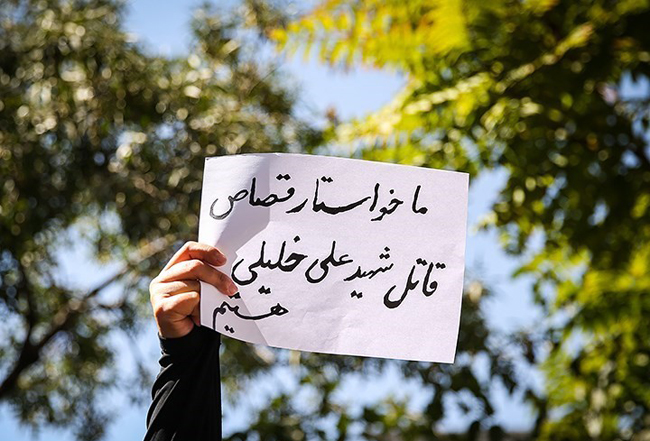 ما خواستار قصاص
قاتل شهید علی خلیلی
هستیم